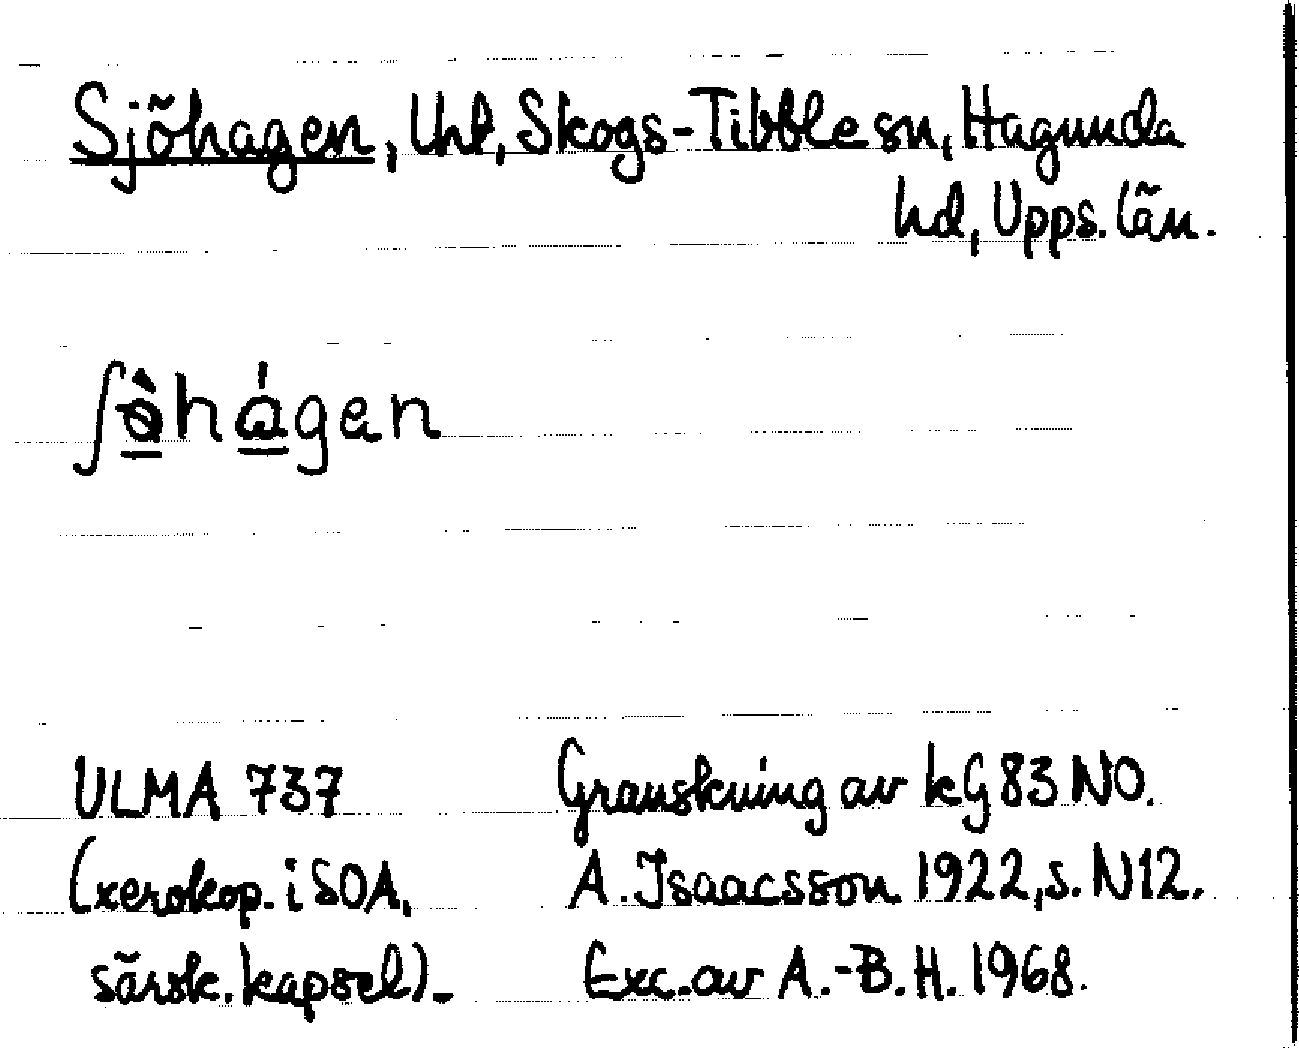 Sjöhagen, Uhl, Skogs-Tibble sn, Hagunda
hd, Upps. län.
ULMA 737
(xerokop. i SOA,
särsk. kapsel).
Granskning av kG 83 NO.
A. Isaacsson 1922, s. N12.
Exc. av A.-B.H. 1968.